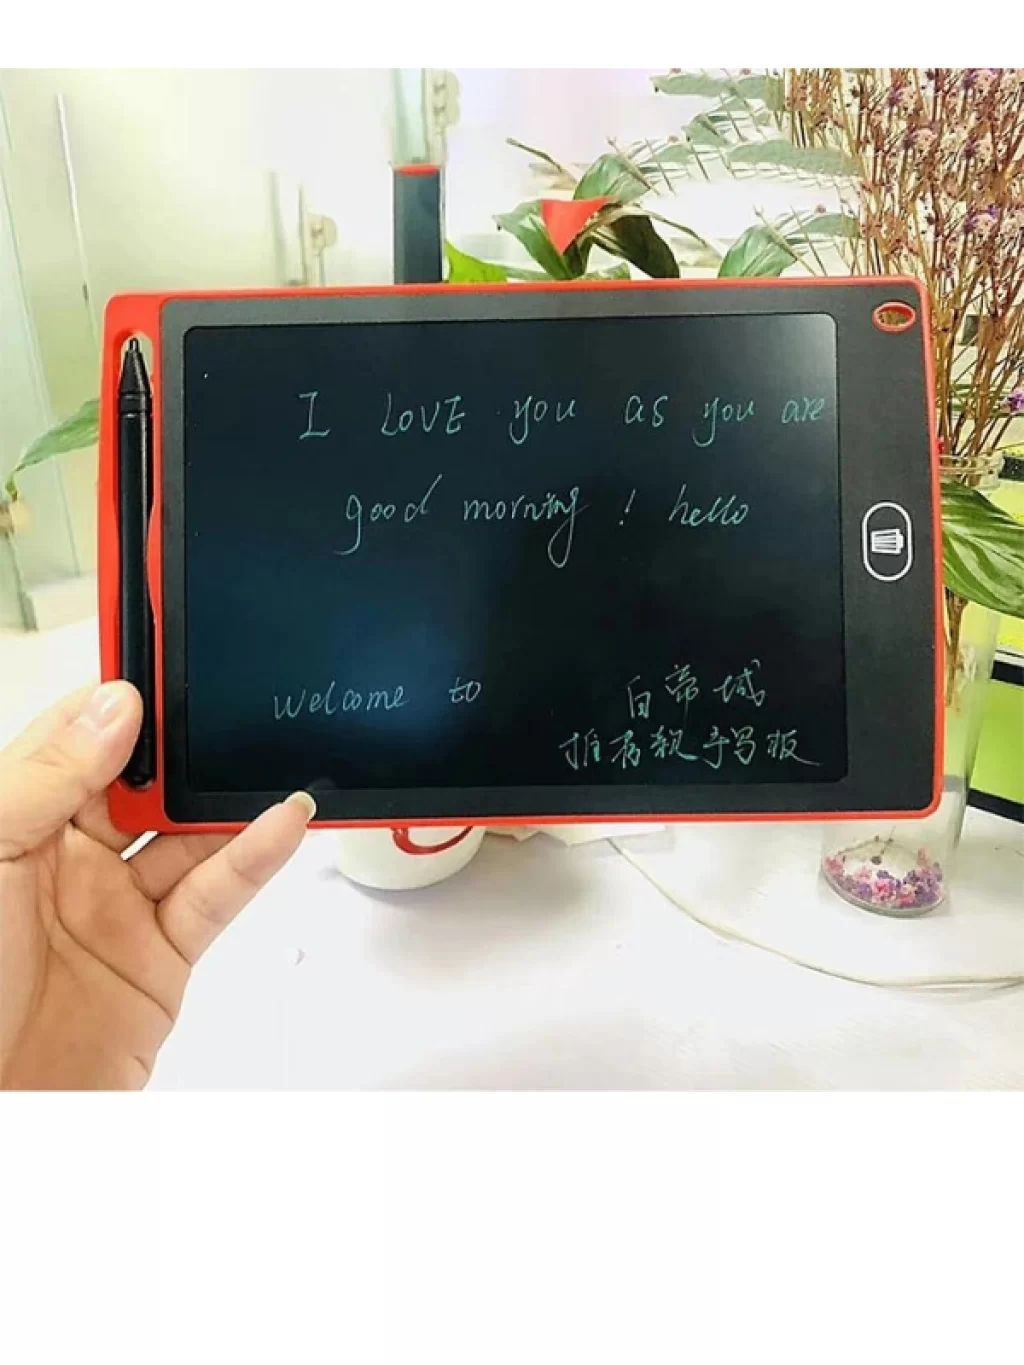 I LOVE you as you are
good morning ! hello
welcome to 白帝城
手写板